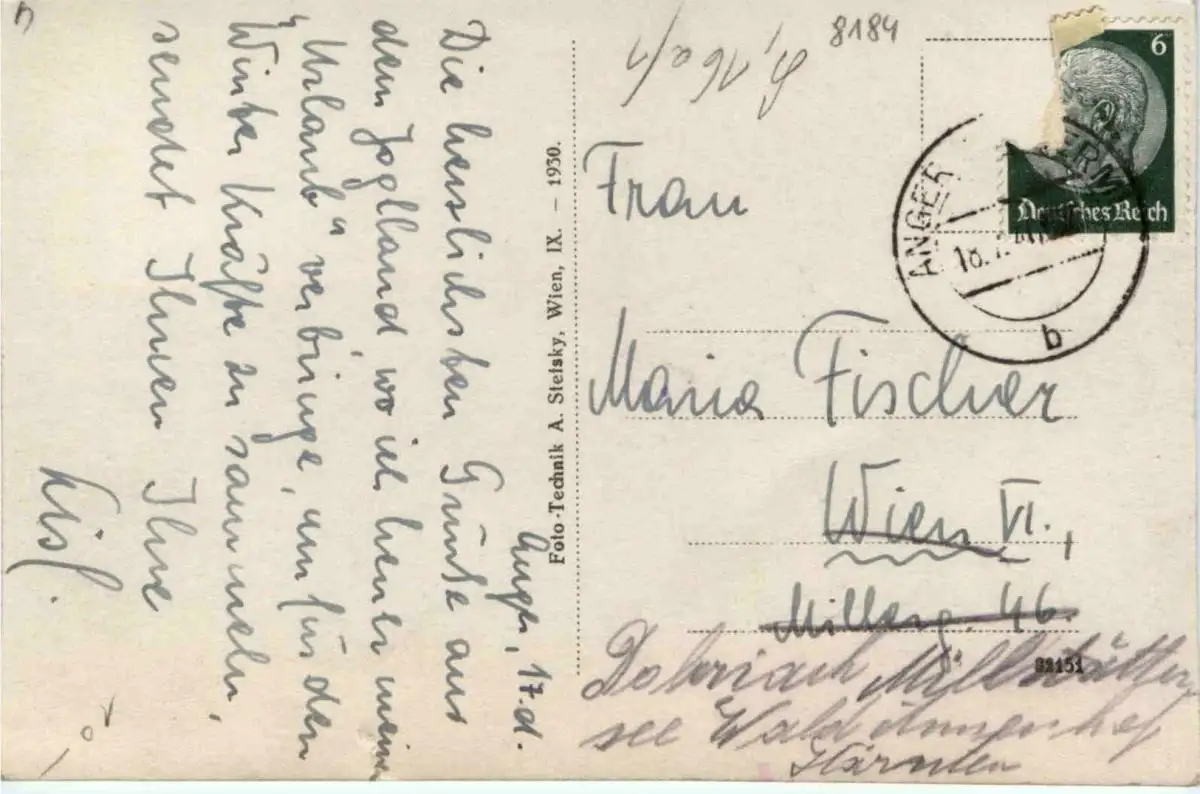 Anger, 17.d.
Die herzlichsten Grüße aus
dem Joglland, wo ich heuer meinen
"Urlaub" verbringe, um für den
Winter Kräfte zu sammeln,
sendet Ihnen Ihre
Foto-Technik A. Stefsky, Wien, IX. – 1930.
8184
6
Deutsches Reich
ANGER
18.
b
Frau
Maria Fischer
Wien VI.,
Millerg. 46.
Döbriach Millstätter
see
Kärnten
32151